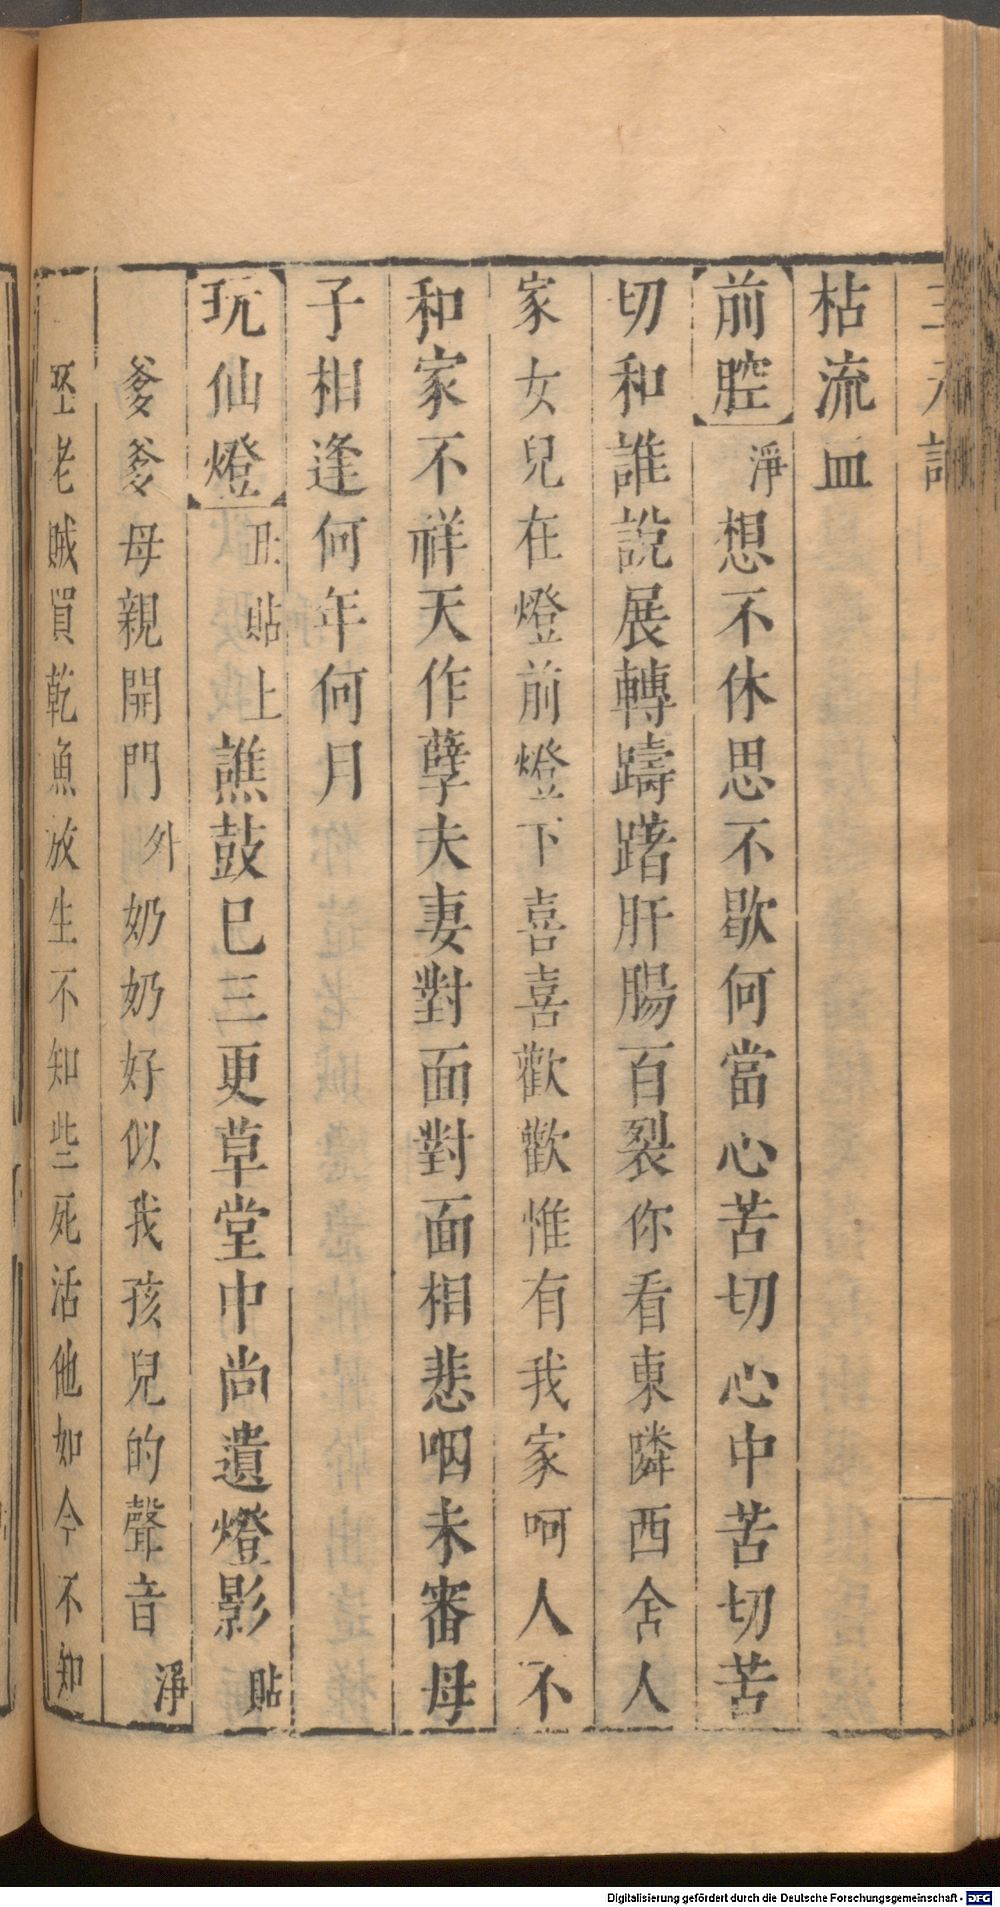 枯流血
前腔淨想不休思不歇何當心苦切心中苦切苦
切和誰說展轉躊躇肝腸百裂你看東隣西舍人
家女兒在燈前燈下喜喜歡歡惟有我家呵人不
和家不祥天作孽夫妻對面對面相悲咽未審母
子相逢何年何月
玩仙燈丑貼上譙鼓巳三更草堂中尚遺燈影貼
爹爹母親開門外奶奶好似我孩兒的聲音淨
老賊買乾魚放生不知些死活他如今不知
Digitalisierung gefördert durch die Deutsche Forschungsgemeinschaft - DFG